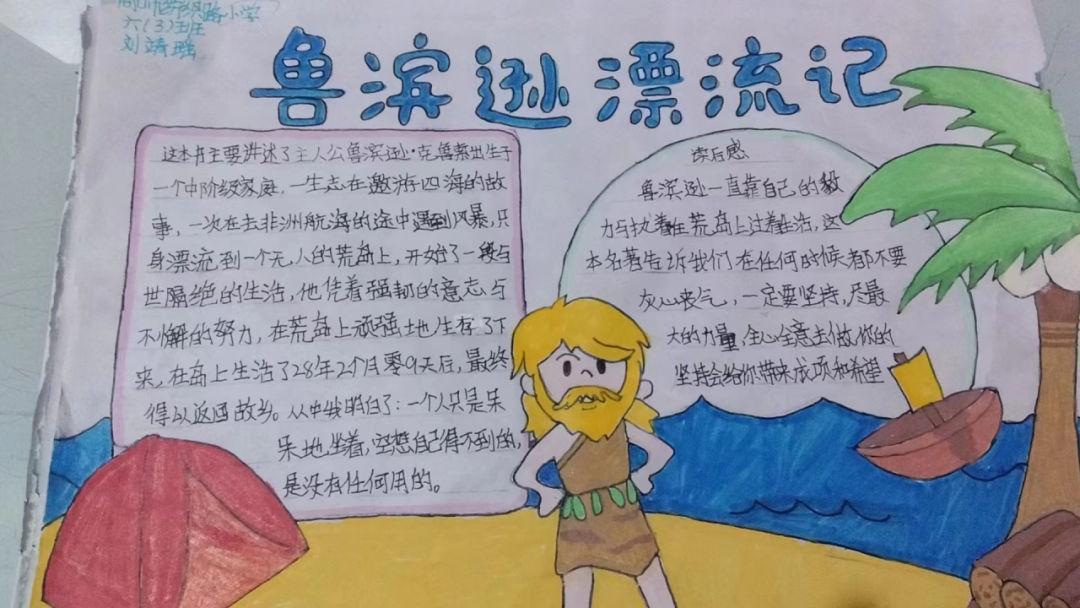 路小学
六(3)班
刘靖
鲁滨逊漂流记
这本书主要讲述了主人公鲁滨逊·克鲁索出生于
一个中阶级家庭,一生志在遨游四海的故
事,一次在去非洲航海的途中遇到风暴,只
身漂流到一个无人的荒岛上,开始了一段与
世隔绝的生活,他凭着强韧的意志与
不懈的努力,在荒岛上顽强地生存了下
来,在岛上生活了28年2个月零9天后,最终
得以返回故乡。从中我明白了:一个人只是呆
呆地坐着,空想自己得不到的,
是没有任何用的。
读后感
鲁滨逊一直靠自己的毅
力与执着在荒岛上过着生活,这
本名著告诉我们在任何时候都不要
灰心丧气,一定要坚持,尽最
大的力量,全心全意去做,你的
坚持会给你带来成功和希望